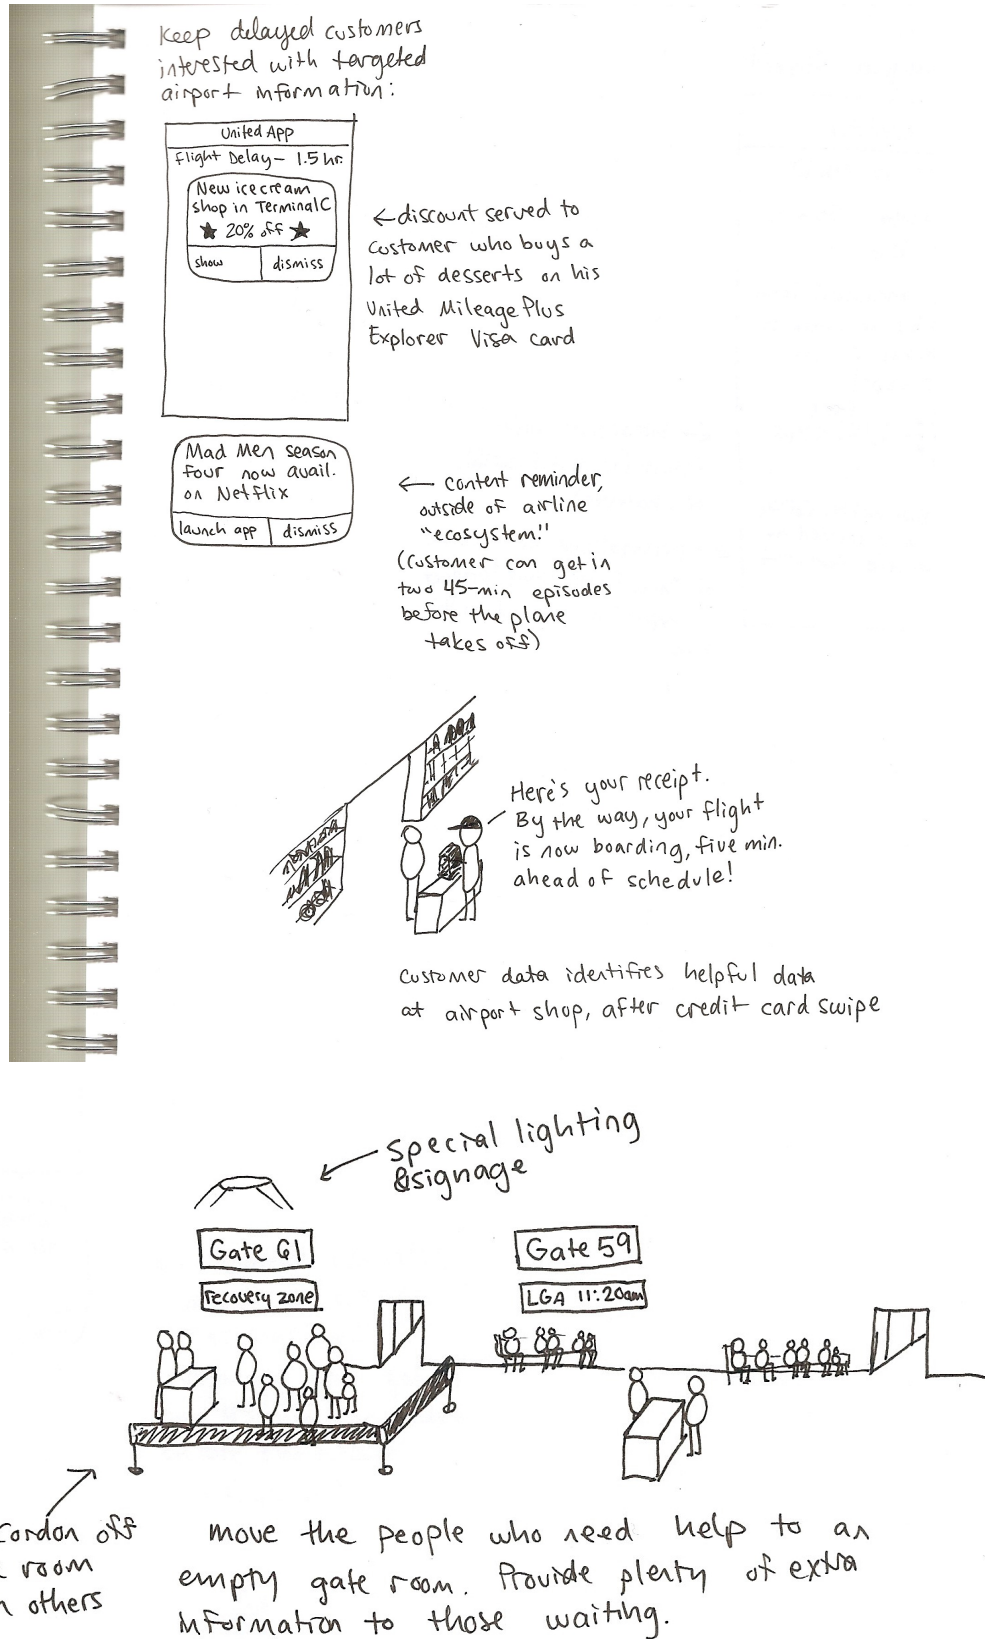 Keep delayed customers
interested with targeted
airport information:
United App
Flight Delay - 1.5 hr.
New ice cream
shop in Terminal C
★ 20% off ★
show
dismiss
← discount served to
customer who buys a
lot of desserts on his
United Mileage Plus
Explorer Visa card
Mad Men season
four now avail.
on Netflix
launch app
dismiss
← content reminder,
outside of airline
"ecosystem."
(customer can get in
two 45-min episodes
before the plane
takes off)
Here's your receipt.
By the way, your flight
is now boarding, five min.
ahead of schedule!
Customer data identifies helpful data
at airport shop, after credit card swipe
Special lighting
& signage
Gate 61
recovery zone
Gate 59
LGA 11:20am
Cordon off
room
others
move the people who need help to an
empty gate room. Provide plenty of extra
information to those waiting.